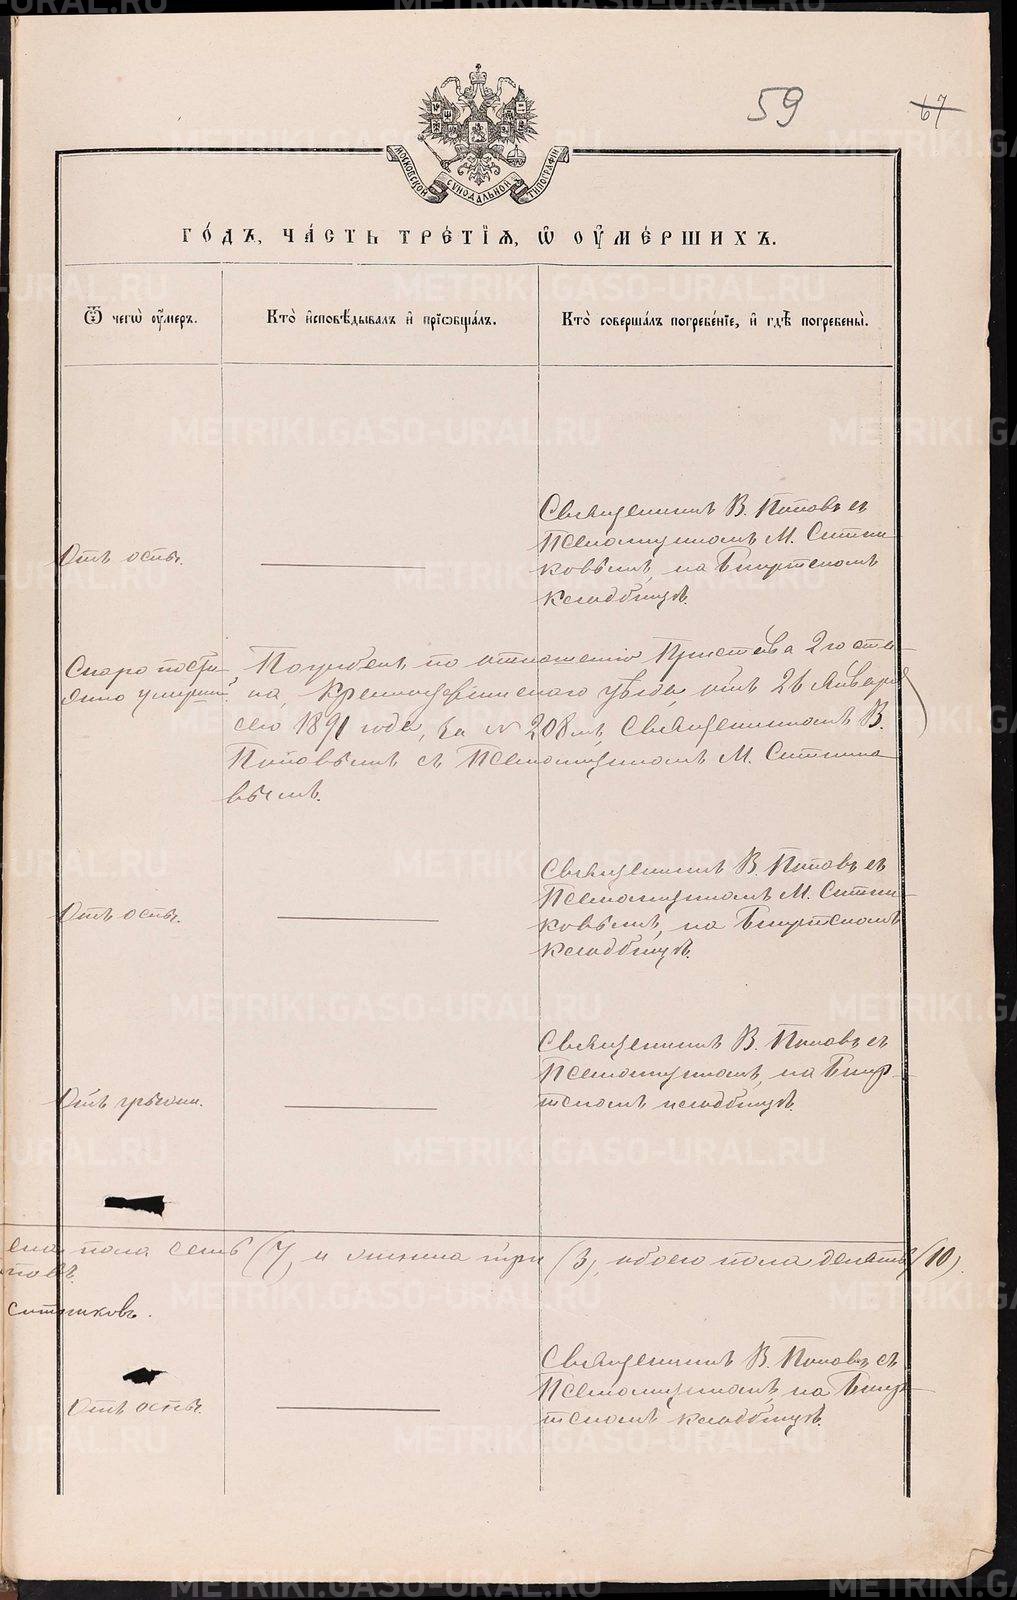 59
67
МОСКОВСКОЙ СѴНОДАЛЬНОЙ ТИПОГРАФІИ
ГО́ДЪ, ЧА́СТЬ ТРЕ́ТІѦ, Ѡ҆ ОУ҆МЕ́РШИХЪ.
Ѿ чегѡ̀ оу҆́меръ.
Кто̀ и҆сповѣ́дывалъ и҆ прїѡбща́лъ.
Кто̀ соверша́лъ погребе́нїе, и҆ гдѣ̀ погребены̀.
Священникъ В. Поповъ съ
Псаломщикомъ М. Ситни-
Отъ оспы.
ковымъ, на
кладбищѣ.
Скоропости-
жно умершій.
Погребенъ по отношенію Пристава 2го ста-
на, Красноуфимскаго уѣзда, отъ 26 Января
сего 1891 года, за № 208мъ, Священникомъ В.
Поповымъ съ Псаломщикомъ М. Ситнико-
вымъ.
Священникъ В. Поповъ съ
Псаломщикомъ М. Ситни-
Отъ оспы.
ковымъ, на
кладбищѣ.
Священникъ В. Поповъ съ
Псаломщикомъ, на
Отъ грыжи.
кладбищѣ.
пола семь (7), и женска три (3), обоего пола десять (10).
повъ.
Ситниковъ.
Священникъ В. Поповъ съ
Псаломщикомъ, на
Отъ оспы.
кладбищѣ.
METRIKI.GASO-URAL.RU